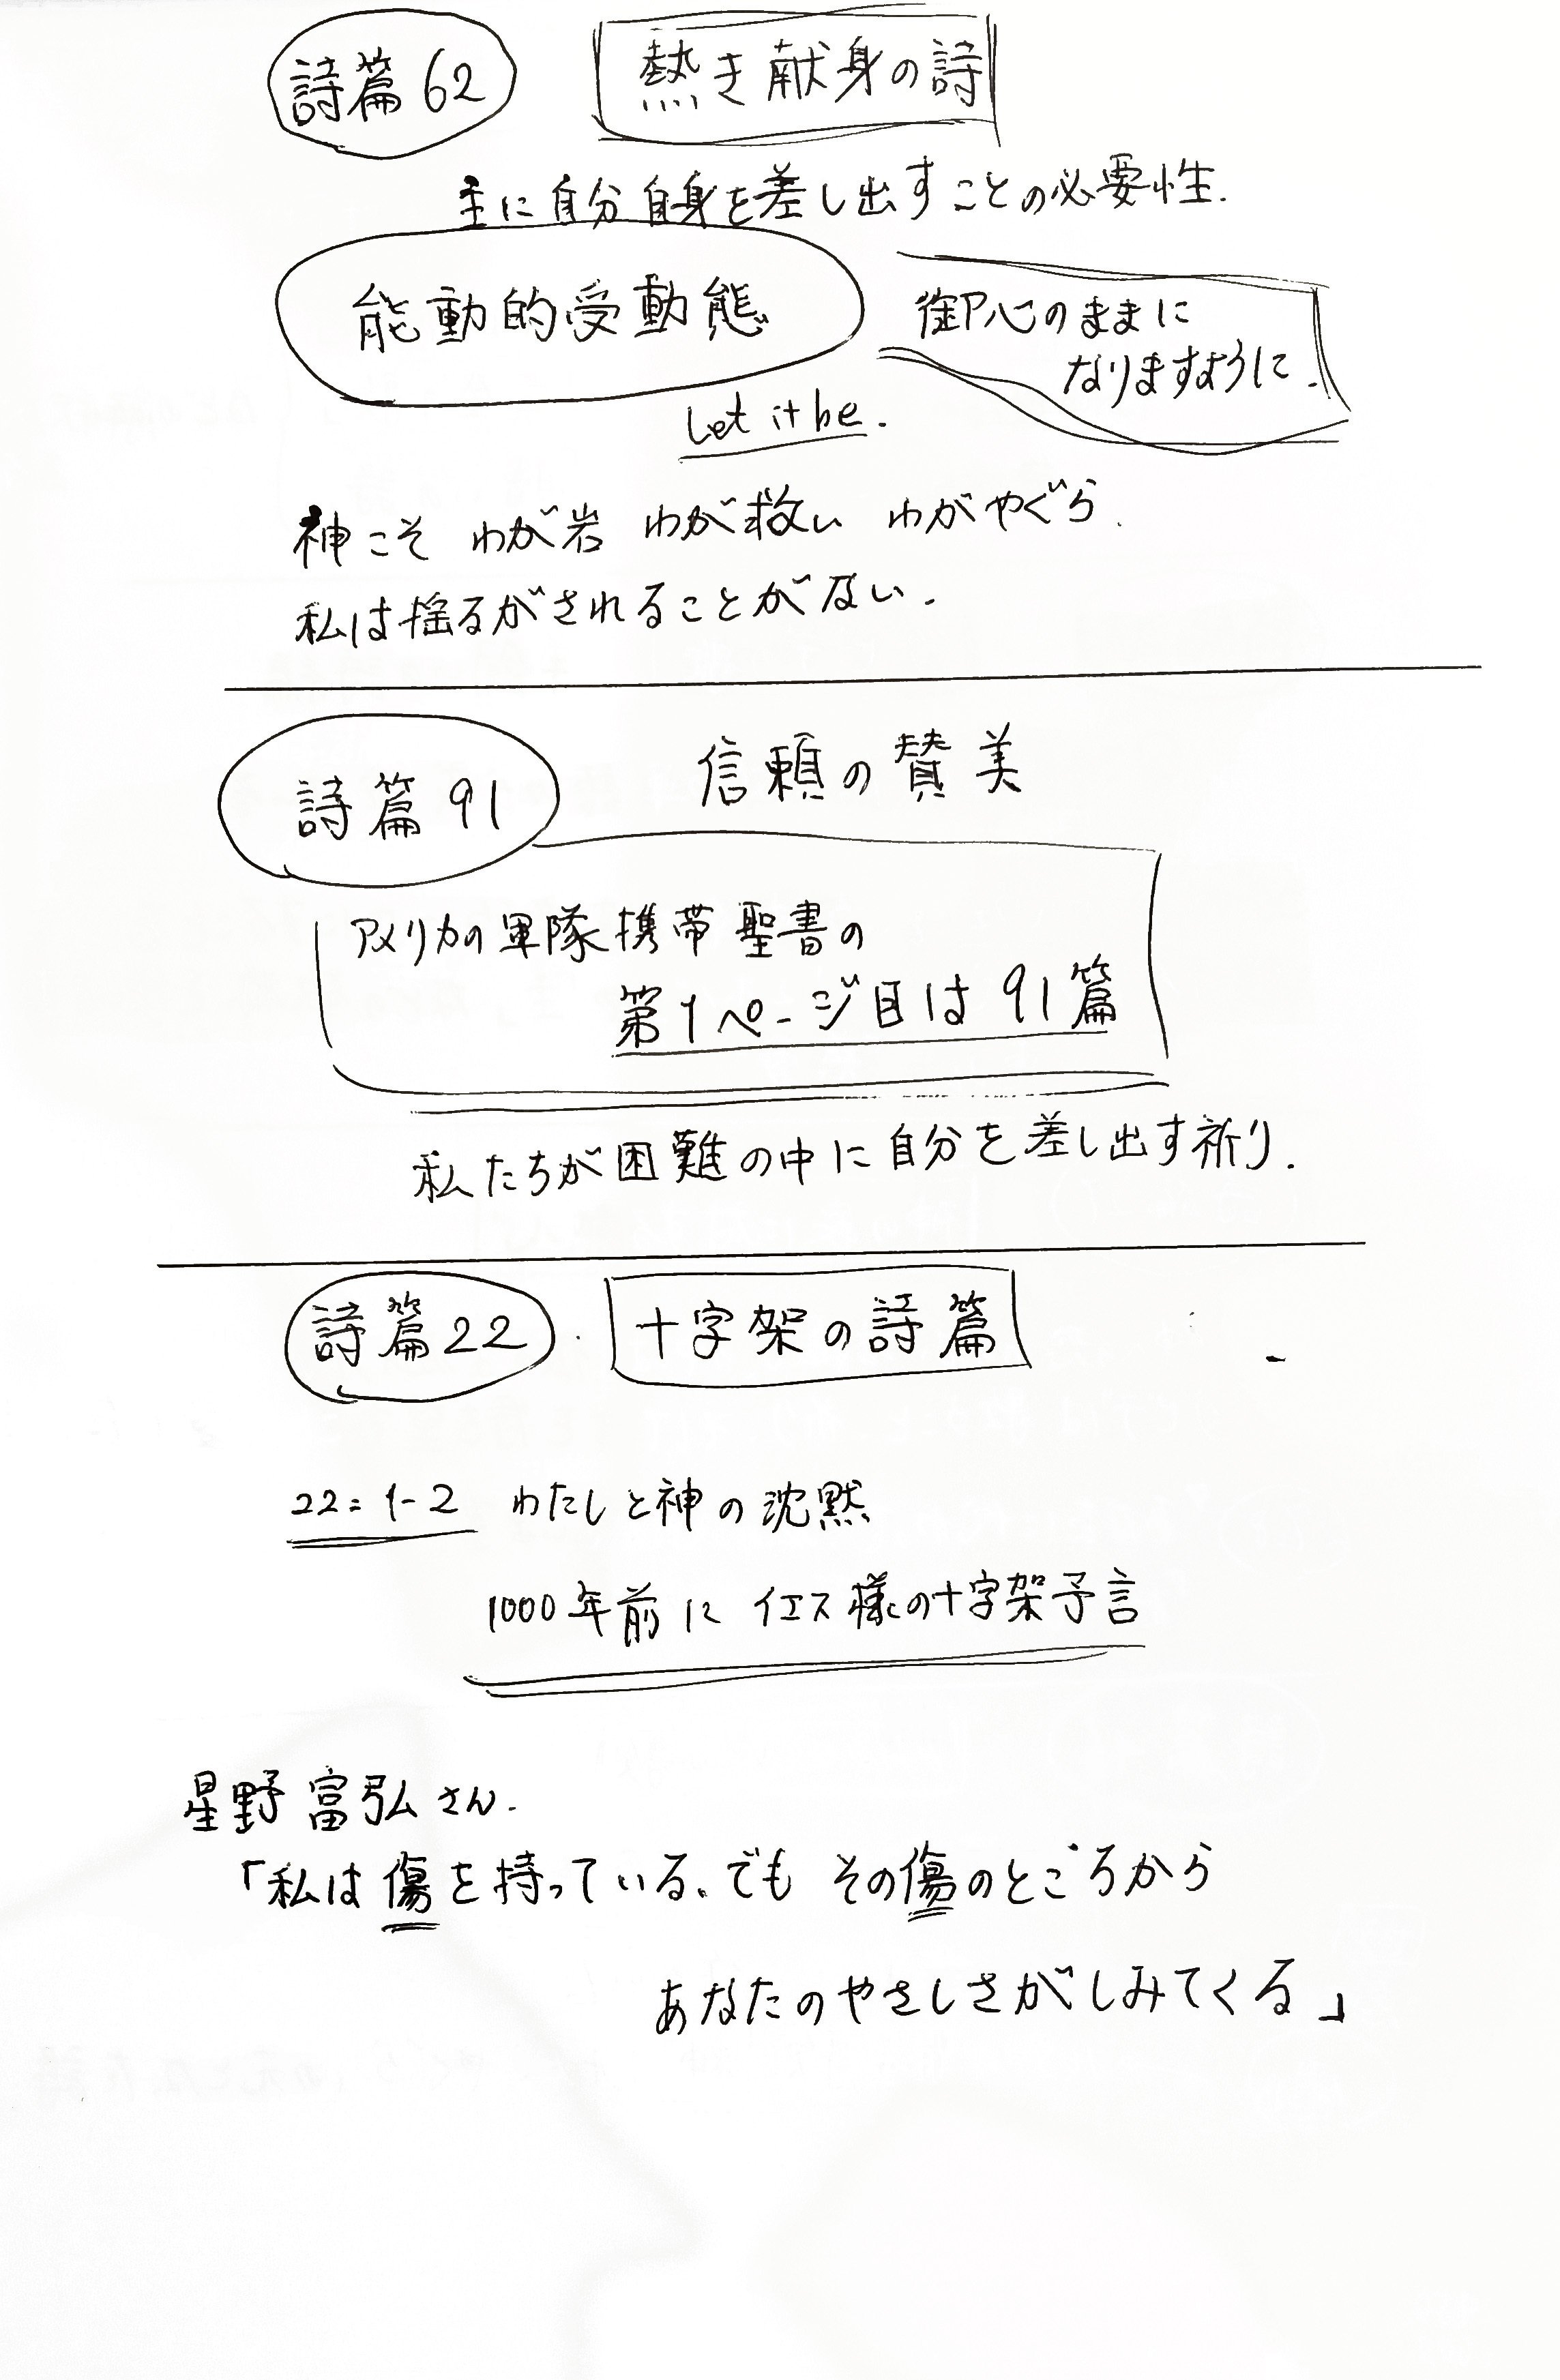 詩篇62 熱き献身の詩
主に自分自身を差し出すことの必要性.
能動的受動態
御心のままに
なりますように.
Let it be.
神こそ わが岩 わが救い わがやぐら.
私は揺るがされることがない.
詩篇91 信頼の賛美
アメリカの軍隊携帯聖書の
第1ページ目は91篇
私たちが困難の中に自分を差し出す祈り.
詩篇22 十字架の詩篇
22:1-2 わたしと神の沈黙
1000年前に イエス様の十字架予言
星野富弘さん.
「私は傷を持っている、でも その傷のところから
あなたのやさしさがしみてくる」